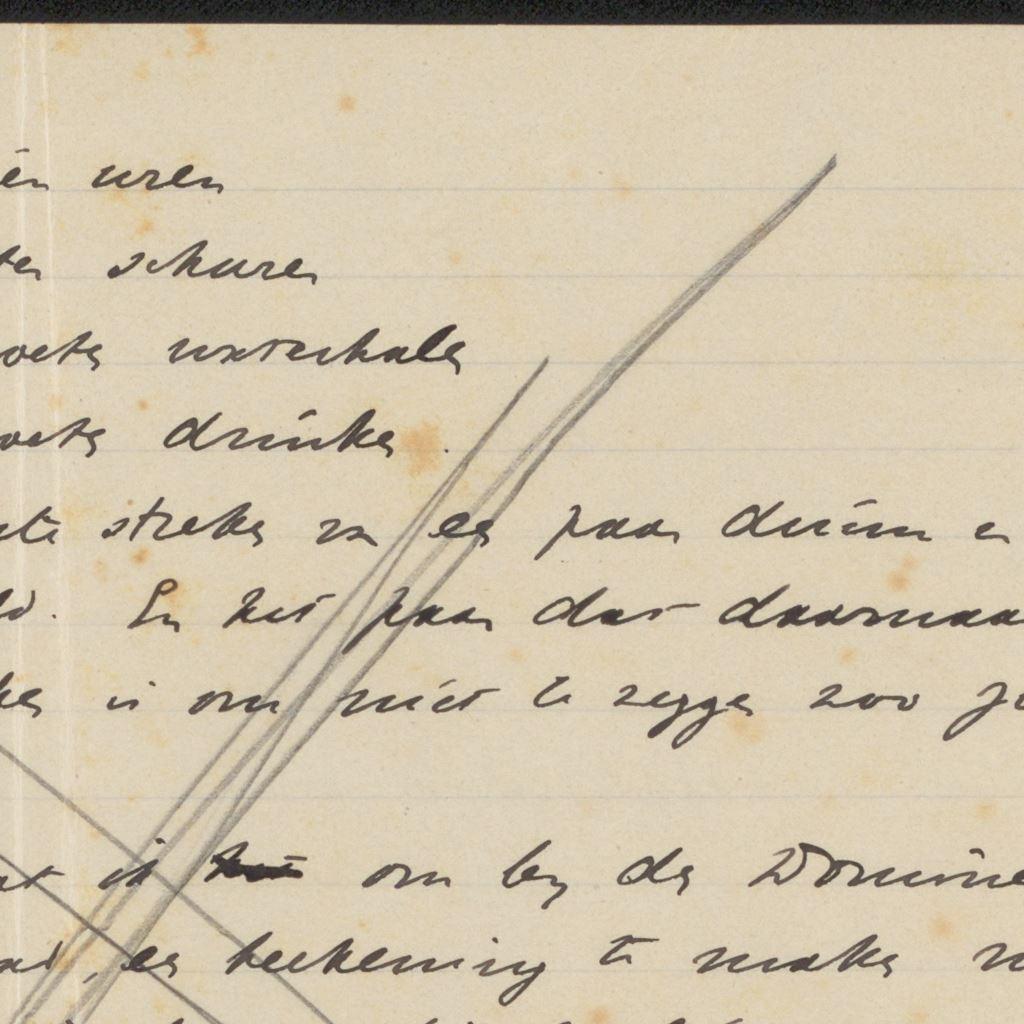 én uren
ten schuren
voeten
voeten drinken.
streken van een paar duim e
En het paar dat daarnaa
ken is om niet te zeggen zoo
at ik om by den Dominé
ad, een teekening te maken